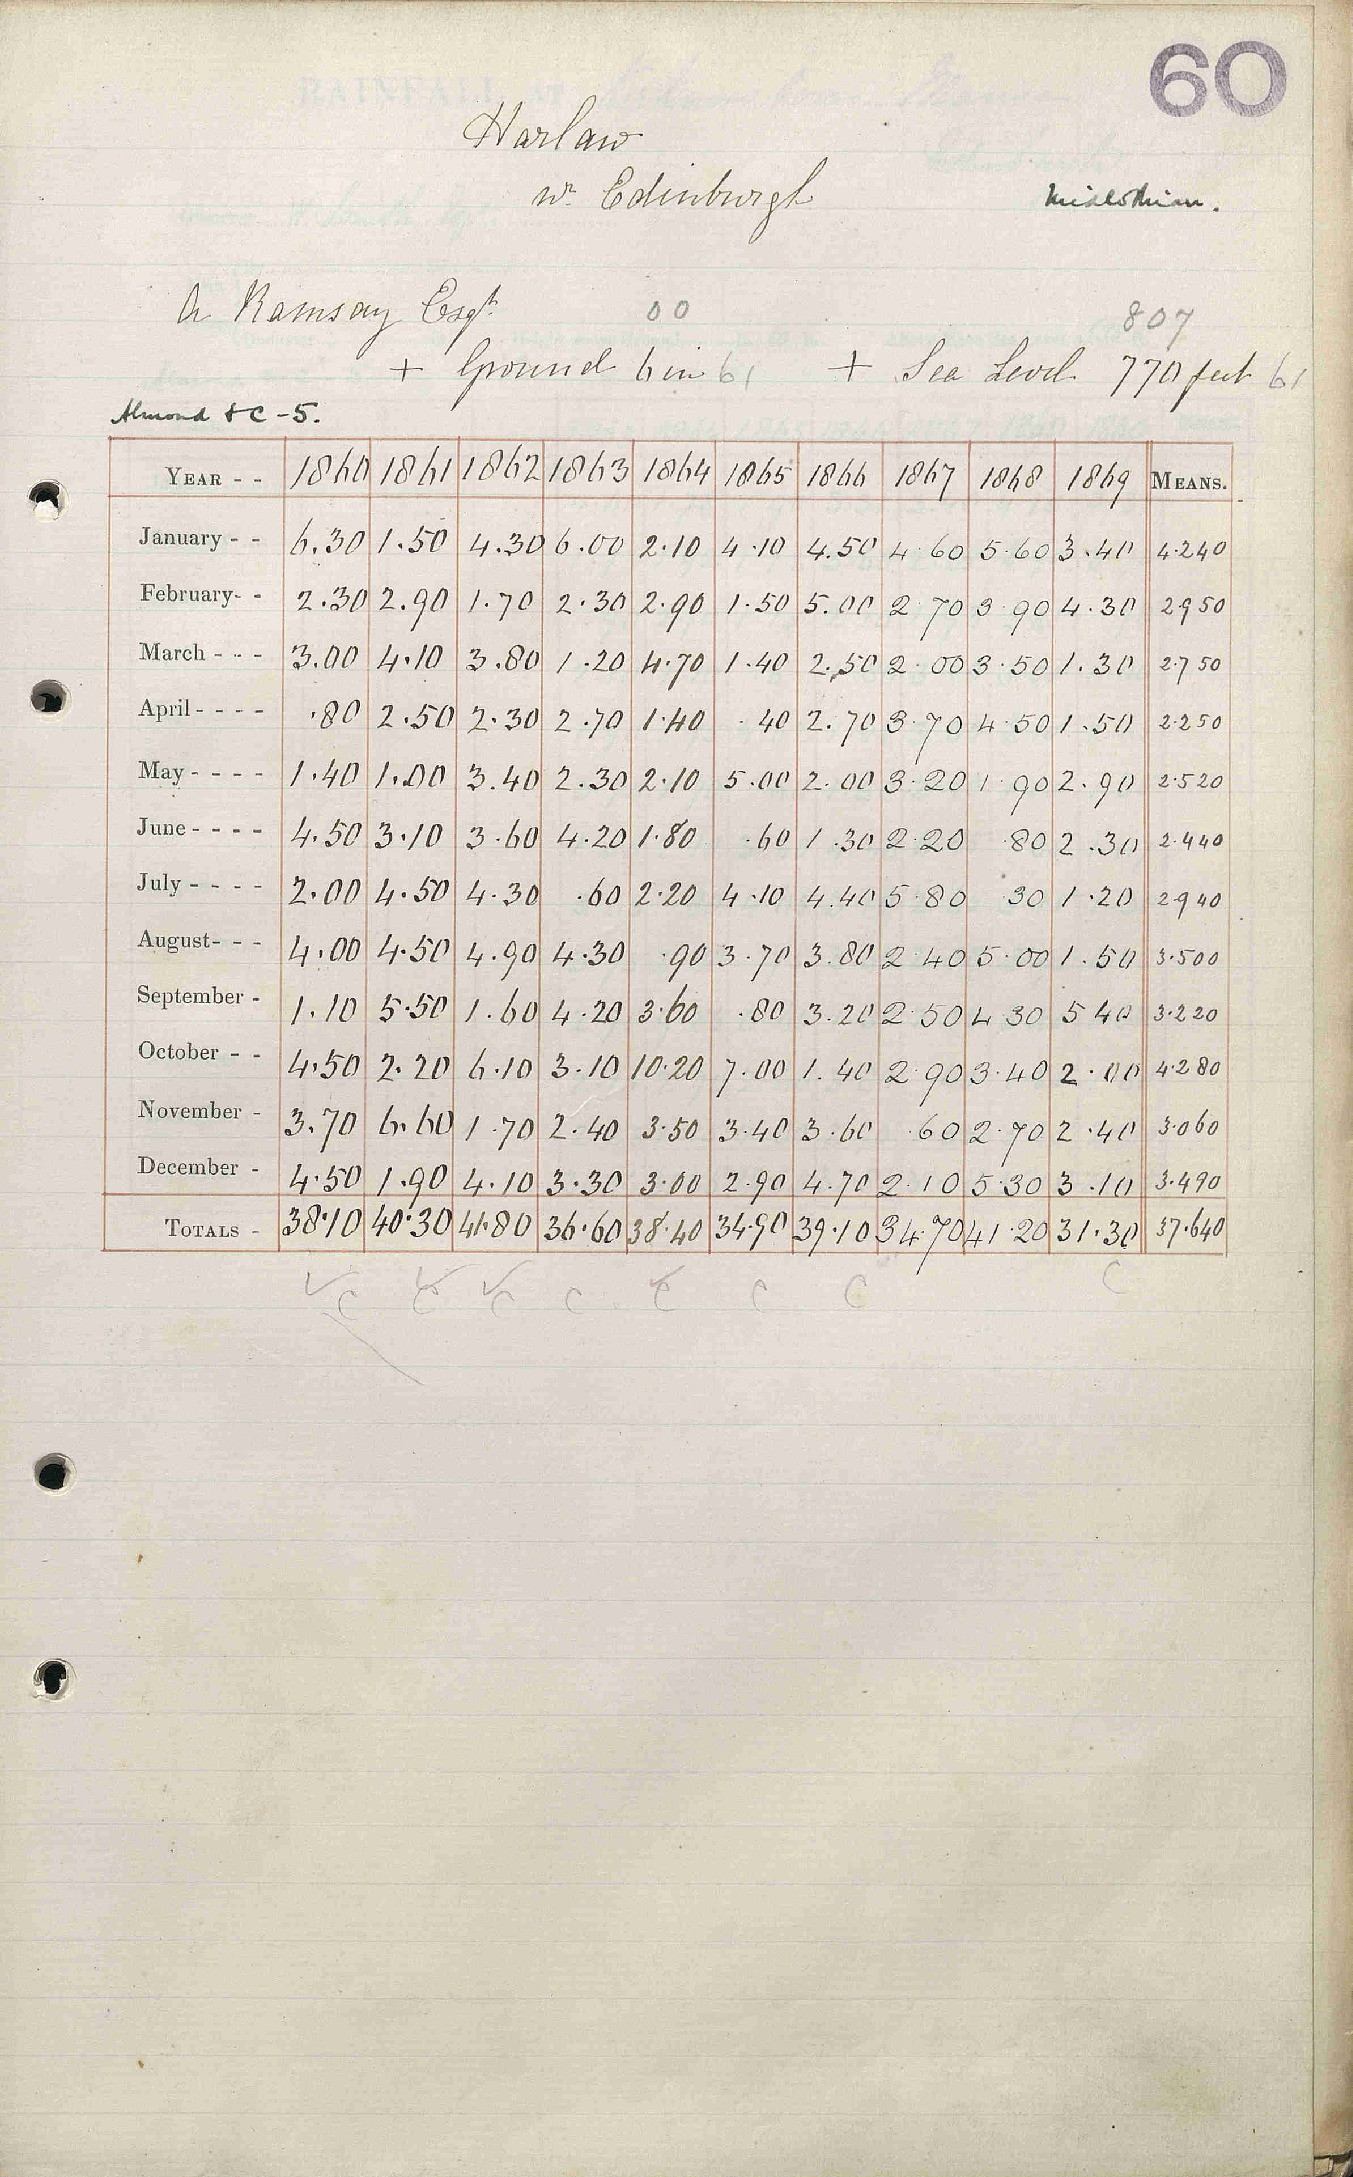 60
Harlaw
nr Edinburgh
Midlothian.
A Ramsay Esqr 00 807
+ Ground 6 in 61 + Sea Level 770 feet 61
Almond &C - 5.
YEAR - - 1860 1861 1862 1863 1864 1865 1866 1867 1868 1869 MEANS.
January - - 6.30 1.50 4.30 6.00 2.10 4.10 4.50 4.60 5.60 3.40 4.240
February- - 2.30 2.90 1.70 2.30 2.90 1.50 5.00 2.70 3.90 4.30 2950
March - - - 3.00 4.10 3.80 1.20 4.70 1.40 2.50 2.00 3.50 1.30 2.750
April - - - - .80 2.50 2.30 2.70 1.40 .40 2.70 3.70 4.50 1.50 2.250
May - - - - 1.40 1.00 3.40 2.30 2.10 5.00 2.00 3.20 1.90 2.90 2.520
June - - - - 4.50 3.10 3.60 4.20 1.80 .60 1.30 2.20 .80 2.30 2.440
July - - - - 2.00 4.50 4.30 .60 2.20 4.10 4.40 5.80 30 1.20 2940
August- - - 4.00 4.50 4.90 4.30 .90 3.70 3.80 2.40 5.00 1.50 3.500
September - 1.10 5.50 1.60 4.20 3.60 .80 3.20 2.50 4.30 5 40 3.220
October - - 4.50 2.20 6.10 3.10 10.20 7.00 1.40 2.90 3.40 2.00 4.280
November - 3.70 6.60 1.70 2.40 3.50 3.40 3.60 .60 2.70 2.40 3.060
December - 4.50 1.90 4.10 3.30 3.00 2.90 4.70 2.10 5.30 3.10 3.490
TOTALS - 38.10 40.30 41.80 36.60 38.40 34.90 39.10 34.70 41.20 31.30 37.640
C C C C C C C C